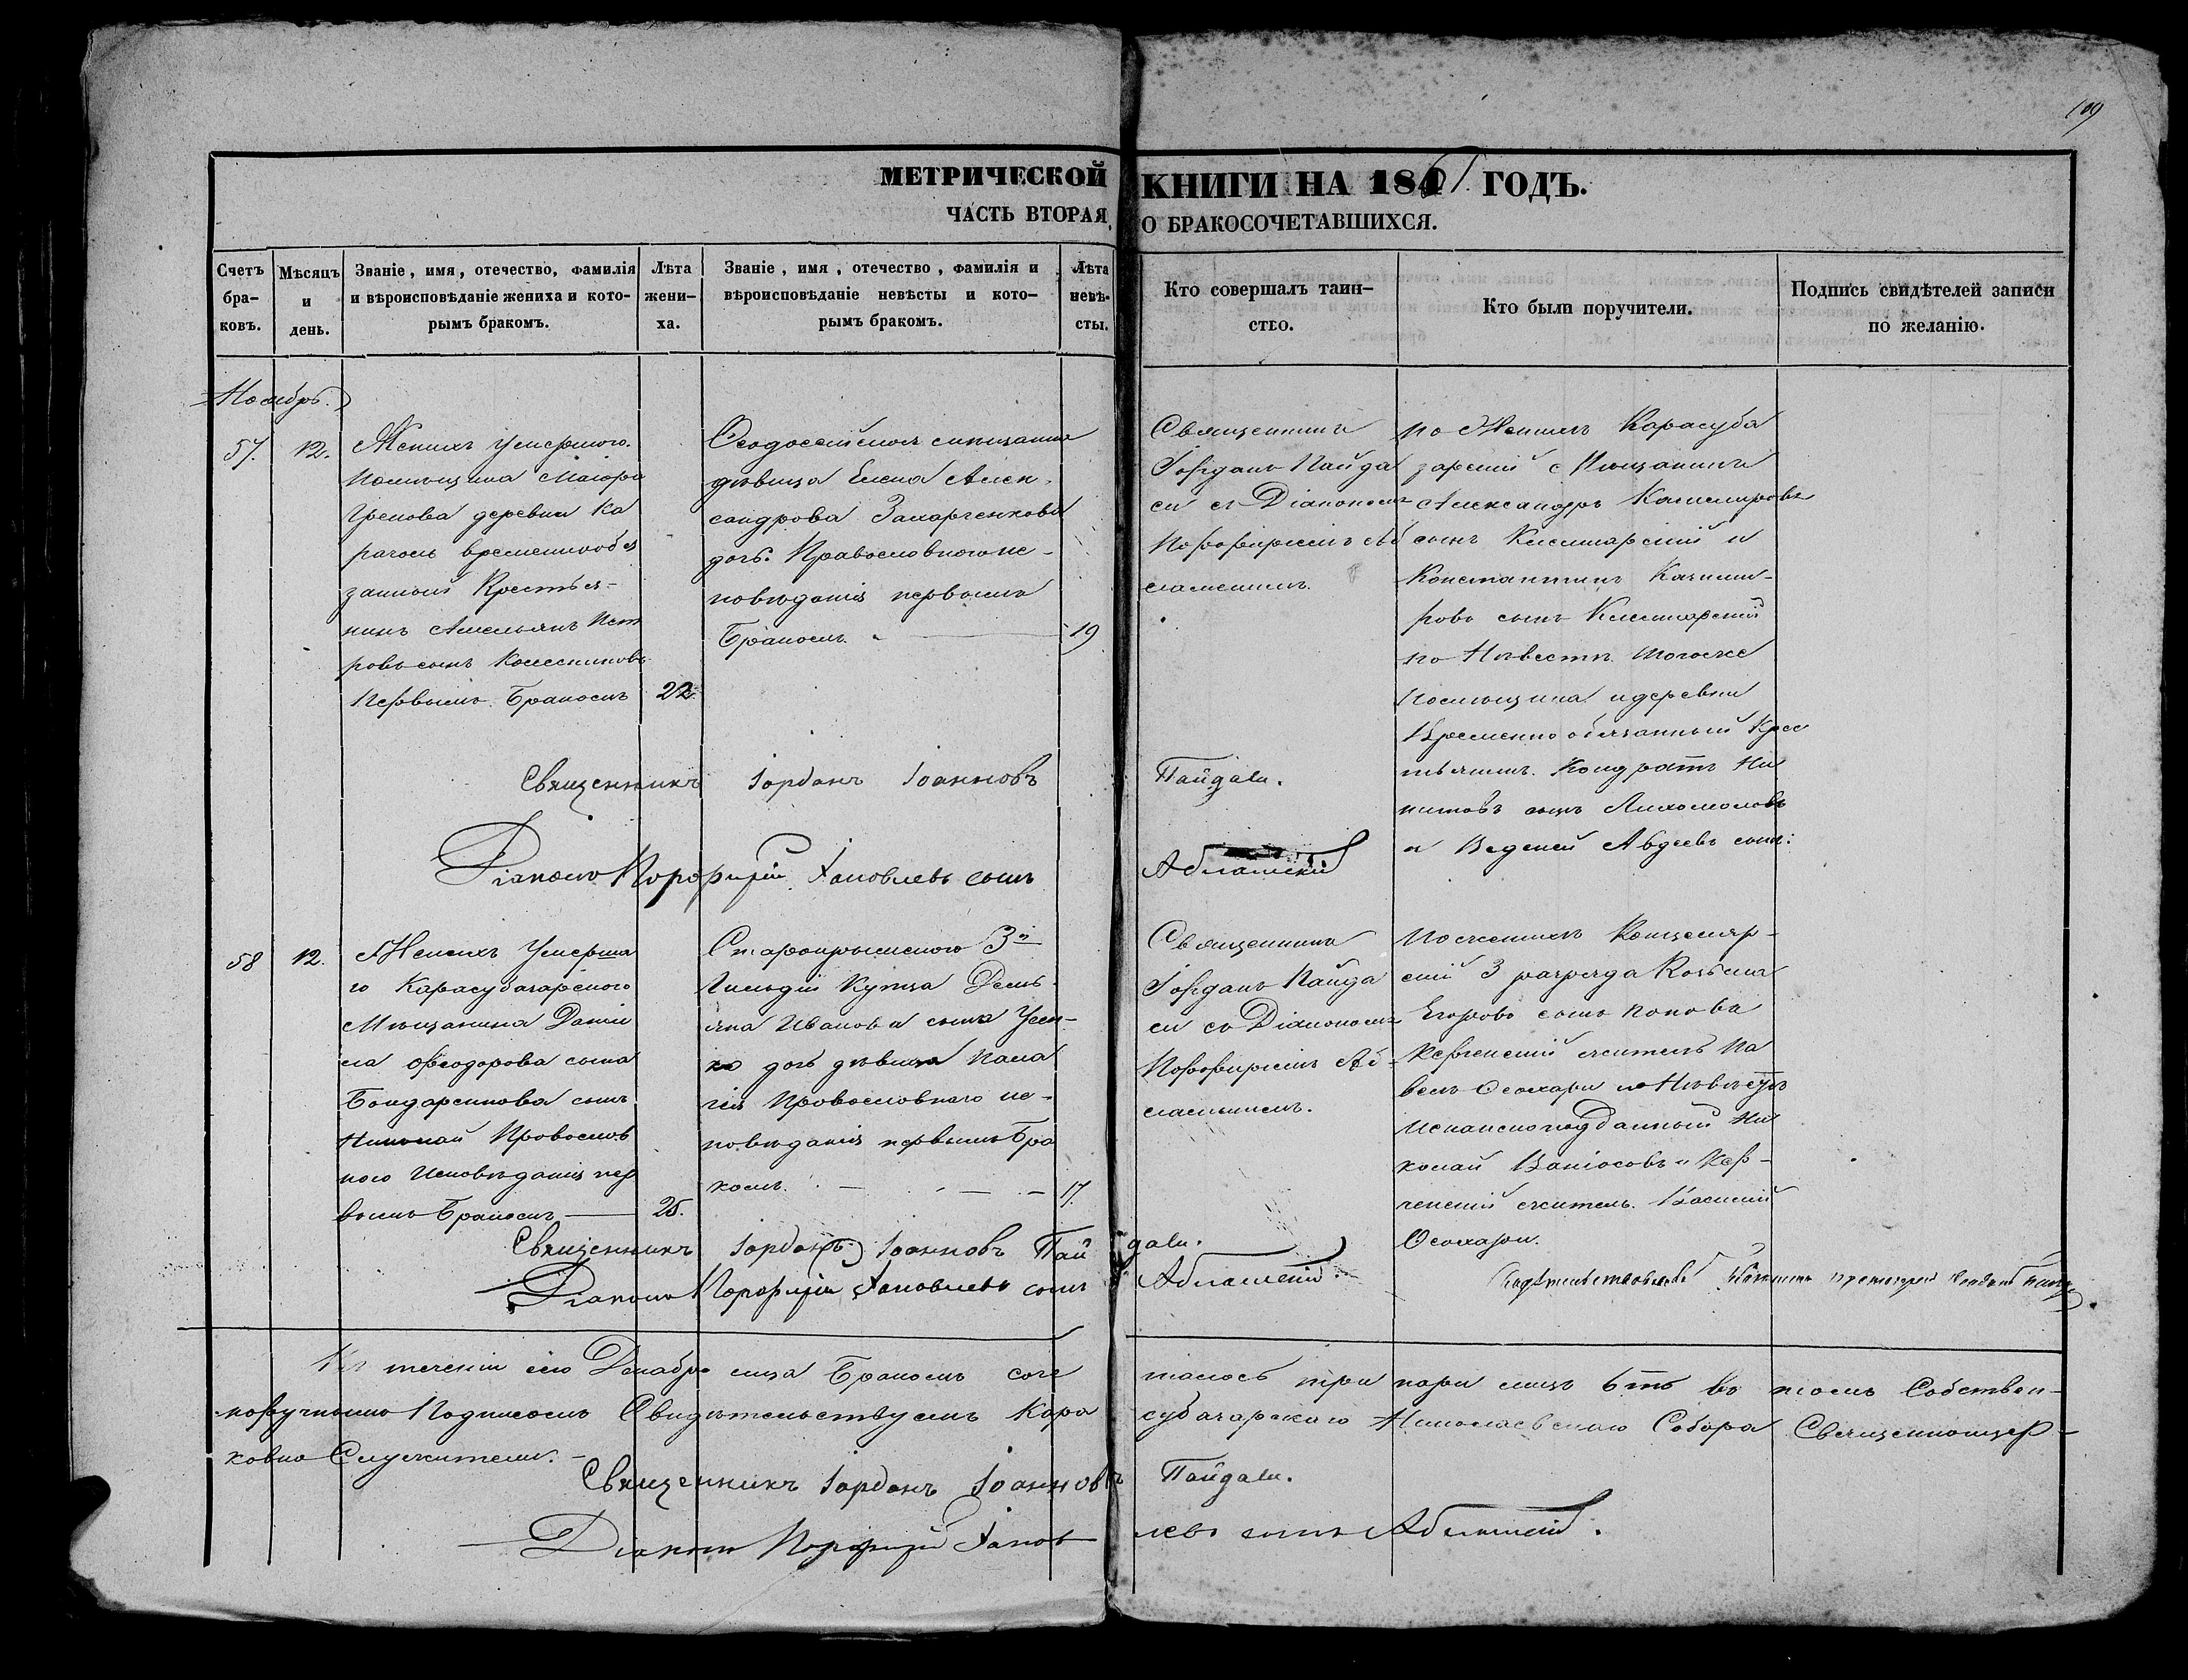 109
МЕТРИЧЕСКОЙ КНИГИ НА 1861 ГОДЪ.
ЧАСТЬ ВТОРАЯ, О БРАКОСОЧЕТАВШИХСЯ.
Счетъ бра-
ковъ.
Мѣсяцъ
и
день.
Званіе, имя, отечество, фамилія
и вѣроисповѣданіе жениха и кото-
рымъ бракомъ.
Лѣта
жени-
ха.
Званіе, имя, отечество, фамилія и
вѣроисповѣданіе невѣсты и кото-
рымъ бракомъ.
Лѣта
невѣ-
сты.
Кто совершалъ таин-
ство.
Кто были поручители.
Подпись свидѣтелей записи
по желанію.
Ноябрь.
57.
12.
Женихъ Умершого
Помѣщика Маіора
деревни Ка
рачоль временнообя
занный Крестья-
нинъ Амельянъ Пет
ровъ сынъ Колесниковъ
Первымъ Бракомъ
22.
Ѳеодосейская мѣщанка
дѣвица Елена Алек
сандрова Захарченкова
дочь Православного ис-
повѣданія первымъ
Бракомъ
19
Священникъ
Іорданъ Пайда
си съ Діакономъ
Порфиріемъ Аб
лашкимъ.
по Женихѣ Карасуба
зарскій Мѣщанинъ
Александръ Казимировъ
сынъ и
Константинъ Казими-
ровъ сынъ
по Невѣстѣ тогоже
Помѣщика и деревни
Временно обязанный Крес
тьянинъ Кондратъ Ни
китовъ сынъ
и Авдеевъ сынъ:
Священникъ Іорданъ Іоанновъ Пайдаси.
Діаконъ Порфирій Яковлевъ сынъ Аблажскій
58
12.
Женихъ Умерша
го Карасубазарского
Мѣщанина Даніи
ла Ѳеодорова сына
Бондаренкова сынъ
Николай Православ
ного Исповѣданія пер
вымъ Бракомъ
25.
Старокрымского 3й
Гильдіи Купца Демь
яна Иванова сына Усен-
ко дочь дѣвица Пела
гія Православного ис-
повѣданія первымъ Бра
комъ.
17.
Священникъ
Іорданъ Пайда
си съ Діакономъ
Порфиріемъ Аб-
лашкимъ.
По женихѣ Концеляр-
скій 3 разряда Козьма
Егоровъ сынъ Попова
Керченскій житель Па
велъ по Невѣстѣ
Испанскоподданный Ни
колай и Кер-
ченскій житель Василій
Священникъ Іорданъ Іоанновъ Пайдаси.
Діаконъ Порфирій Яковлевъ сынъ Аблажскій.
Въ теченіи сего Декабр мца Бракомъ соче талось три пари лицъ 6ть въ томъ Собствен-
норучною Подписомъ Свидѣтельствуемъ Кара субазарского Николаевскаго Собора Священноцер-
ковно Служители.
Священникъ Іорданъ Іоанновъ Пайдаси.
Діаконъ Порфирій Яковлевъ сынъ Аблажскій.